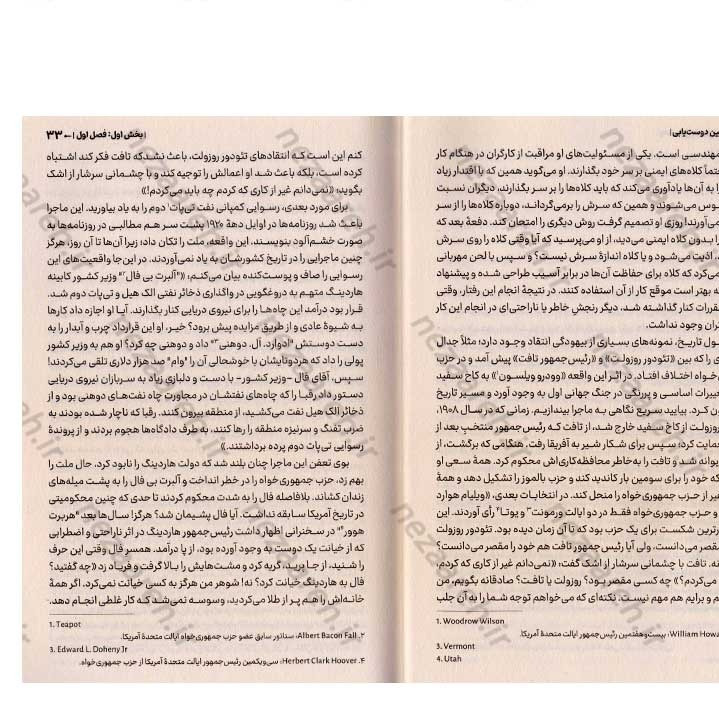 ین دوست‌یابی |
مهندسی است. یکی از مسئولیت‌های او مراقبت از کارگران در هنگام کار
حتماً کلاه‌های ایمنی بر سر خود بگذارند. او می‌گوید همین که با اقتدار زیاد
به آن‌ها یادآوری می‌کند که باید کلاه‌ها را بر سر بگذارند، دیگران نسبت
می‌شوند و همین که سرش را برمی‌گرداند، دوباره کلاه‌ها را از سر
می‌آورند! روزی او تصمیم گرفت روش دیگری را امتحان کند. دفعهٔ بعد که
را بدون کلاه ایمنی می‌دید، از او می‌پرسید که آیا وقتی کلاه را روی سرش
اذیت می‌شود و یا کلاه اندازهٔ سرش نیست؟ و سپس با لحن مهربانی
می‌کرد که کلاه برای حفاظت آن‌ها در برابر آسیب طراحی شده و پیشنهاد
که بهتر است موقع کار از آن استفاده کنند. در نتیجهٔ انجام این رفتار، وقتی
مقررات کنار گذاشته شد، دیگر رنجش خاطر یا ناراحتی‌ای در انجام این کار
وجود نداشت.
طول تاریخ، نمونه‌های بسیاری از بیهودگی انتقاد وجود دارد؛ مثلاً جدال
را که بین «تئودور روزولت» و «رئیس‌جمهور تافت» پیش آمد و در حزب
اختلاف افتاد. در اثر این واقعه «وودرو ویلسون۱» به کاخ سفید
تغییرات اساسی و پررنگی در جنگ جهانی اول به وجود آورد و مسیر تاریخ
کرد. بیایید سریع نگاهی به ماجرا بیندازیم. زمانی که در سال ۱۹۰۸،
روزولت از کاخ سفید خارج شد، از تافت که رئیس‌جمهور منتخب بعد از
حمایت کرد؛ سپس برای شکار شیر به آفریقا رفت. هنگامی که برگشت، از
دیوانه شد و تافت را به‌خاطر محافظه‌کاری‌اش محکوم کرد. همهٔ سعی او
که خود را برای سومین بار کاندید کند و حزب بالموز را تشکیل دهد و همهٔ
غیر از حزب جمهوری‌خواه را منحل کند. در انتخابات بعدی، «ویلیام هوارد
و حزب جمهوری‌خواه فقط در دو ایالت ورمونت۳ و یوتا۴ رأی آوردند. این
شکست برای یک حزب بود که تا آن زمان دیده بود. تئودور روزولت
مقصر می‌دانست، ولی آیا رئیس‌جمهور تافت هم خود را مقصر می‌دانست؟
نه. تافت با چشمانی سرشار از اشک گفت: «نمی‌دانم غیر از کاری که کردم،
می‌کردم؟» چه کسی مقصر بود؟ روزولت یا تافت؟ صادقانه بگویم، من
و برایم هم مهم نیست. نکته‌ای که می‌خواهم توجه شما را به آن جلب
1. Woodrow Wilson
William Howa: بیست‌وهفتمین رئیس‌جمهور ایالت متحدهٔ آمریکا.
3. Vermont
4. Utah
| بخش اول: فصل اول | ← ۳۳
کنم این است که انتقادهای تئودور روزولت، باعث نشد که تافت فکر کند اشتباه
کرده است، بلکه باعث شد او اعمالش را توجیه کند و با چشمانی سرشار از اشک
بگوید: «نمی‌دانم غیر از کاری که کردم چه باید می‌کردم!»
برای مورد بعدی، رسوایی کمپانی نفت تی‌پات۱ دوم را به یاد بیاورید. این ماجرا
باعث شد روزنامه‌ها در اوایل دههٔ ۱۹۲۰ پشت سر هم مطالبی در روزنامه‌ها به
صورت خشم‌آلود بنویسند. این واقعه، ملت را تکان داد؛ زیرا آن‌ها تا آن روز، هرگز
چنین ماجرایی را در تاریخ کشورشان به یاد نمی‌آوردند. در این‌جا واقعیت‌های این
رسوایی را صاف و پوست‌کنده بیان می‌کنم: «آلبرت بی فال۲» وزیر کشور کابینه
هاردینگ متهم به دروغگویی در واگذاری ذخائر نفتی الک هیل و تی‌پات دوم شد.
قرار بود درآمد این چاه‌ها را برای نیروی دریایی کنار بگذارند. آیا او اجازه داد کارها
به شیوهٔ عادی و از طریق مزایده پیش برود؟ خیر، او این قرارداد چرب و آبدار را به
دست دوستش «ادوارد. اَل. دوهنی۳» داد و دوهنی چه کرد؟ او هم به وزیر کشور
پولی را داد که هردوتایشان با خوشحالی آن را «وام» صد هزار دلاری تلقی می‌کردند!
سپس، آقای فال -وزیر کشور- با دست و دلبازی زیاد به سربازان نیروی دریایی
دستور داد رقبا را که چاه‌های نفتشان در مجاورت چاه نفت‌های دوهنی بود و از
ذخائر الک هیل نفت می‌کشید، از منطقه بیرون کنند. رقبا که ناچار شده بودند به
ضرب تفنگ و سرنیزه منطقه را رها کنند، به طرف دادگاه‌ها هجوم بردند و از پروندهٔ
رسوایی تی‌پات دوم پرده برداشتند.»
بوی تعفن این ماجرا چنان بلند شد که دولت هاردینگ را نابود کرد، حال ملت را
بهم زد، حزب جمهوری‌خواه را در خطر انداخت و آلبرت بی فال را به پشت میله‌های
زندان کشاند. بلافاصله فال را به شدت محکوم کردند تا حدی که چنین محکومیتی
در تاریخ آمریکا سابقه نداشت. آیا فال پشیمان شد؟ هرگز! سال‌ها بعد «هربرت
هوور۴» در سخنرانی اظهار داشت رئیس‌جمهور هاردینگ در اثر ناراحتی و اضطرابی
که از خیانت یک دوست به وجود آورده بود، از پا درآمد. همسر فال وقتی این حرف
را شنید، از جا پرید، گریه کرد و مشت‌هایش را بالا گرفت و فریاد زد «چه گفتید؟
فال به هاردینگ خیانت کرد؟ نه! شوهر من هرگز به کسی خیانت نمی‌کرد. اگر همهٔ
خانه‌اش را هم پر از طلا می‌کردید، وسوسه نمی‌شد که کار غلطی انجام دهد.
1. Teapot
۲. Albert Bacon Fall: سناتور سابق عضو حزب جمهوری‌خواه ایالت متحدهٔ آمریکا.
3. Edward L. Doheny Jr
۴. Herbert Clark Hoover: سی‌ویکمین رئیس‌جمهور ایالت متحدهٔ آمریکا از حزب جمهوری‌خواه.